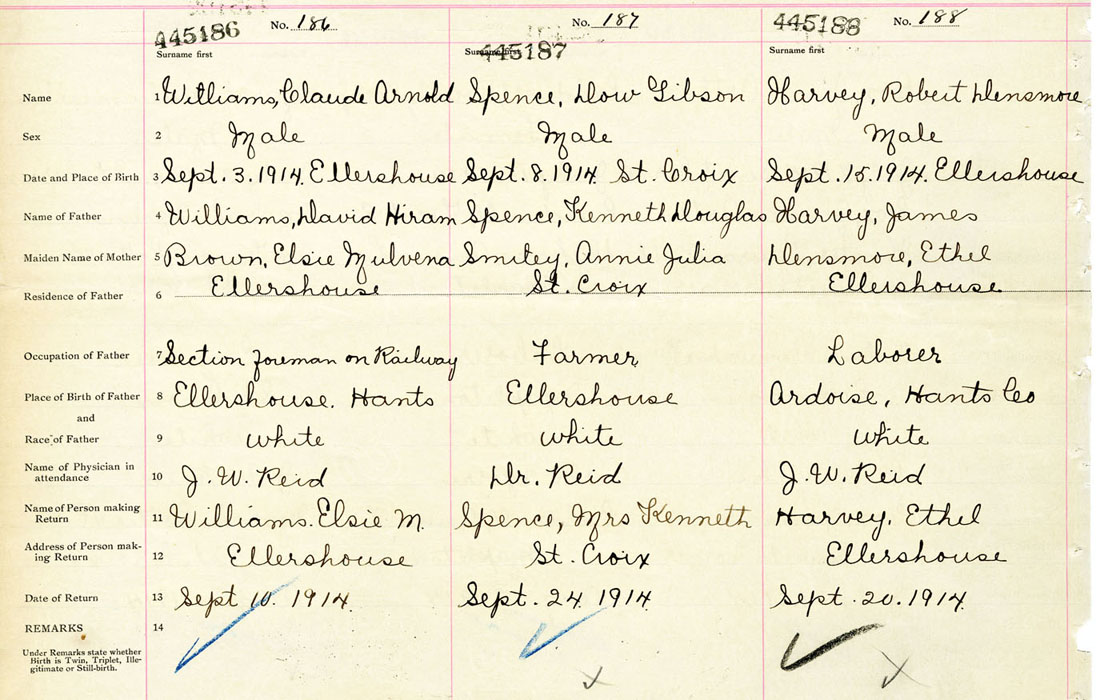 No. 186 No. 187 No. 188
445186 445187 445188
Surname first Surname first Surname first
Name 1 Williams, Claude Arnold Spence, Dow Gibson Harvey, Robert Densmore
Sex 2 Male Male Male
Date and Place of Birth 3 Sept. 3. 1914. Ellershouse Sept. 8. 1914. St. Croix Sept. 15. 1914. Ellershouse
Name of Father 4 Williams, David Hiram Spence, Kenneth Douglas Harvey, James
Maiden Name of Mother 5 Brown, Elsie Mulvena Smiley, Annie Julia Densmore, Ethel
Residence of Father 6 Ellershouse St. Croix Ellershouse
Occupation of Father 7 Section foreman on Railway Farmer Laborer
Place of Birth of Father 8 Ellershouse. Hants Ellershouse Ardoise, Hants Co
and
Race of Father 9 White White White
Name of Physician in
attendance 10 J. W. Reid Dr. Reid J. W. Reid
Name of Person making
Return 11 Williams. Elsie M. Spence, Mrs Kenneth Harvey, Ethel
Address of Person mak-
ing Return 12 Ellershouse St. Croix Ellershouse
Date of Return 13 Sept 10. 1914. Sept. 24 1914. Sept. 20. 1914.
REMARKS 14
Under Remarks state whether
Birth is Twin, Triplet, Ille-
gitimate or Still-birth.